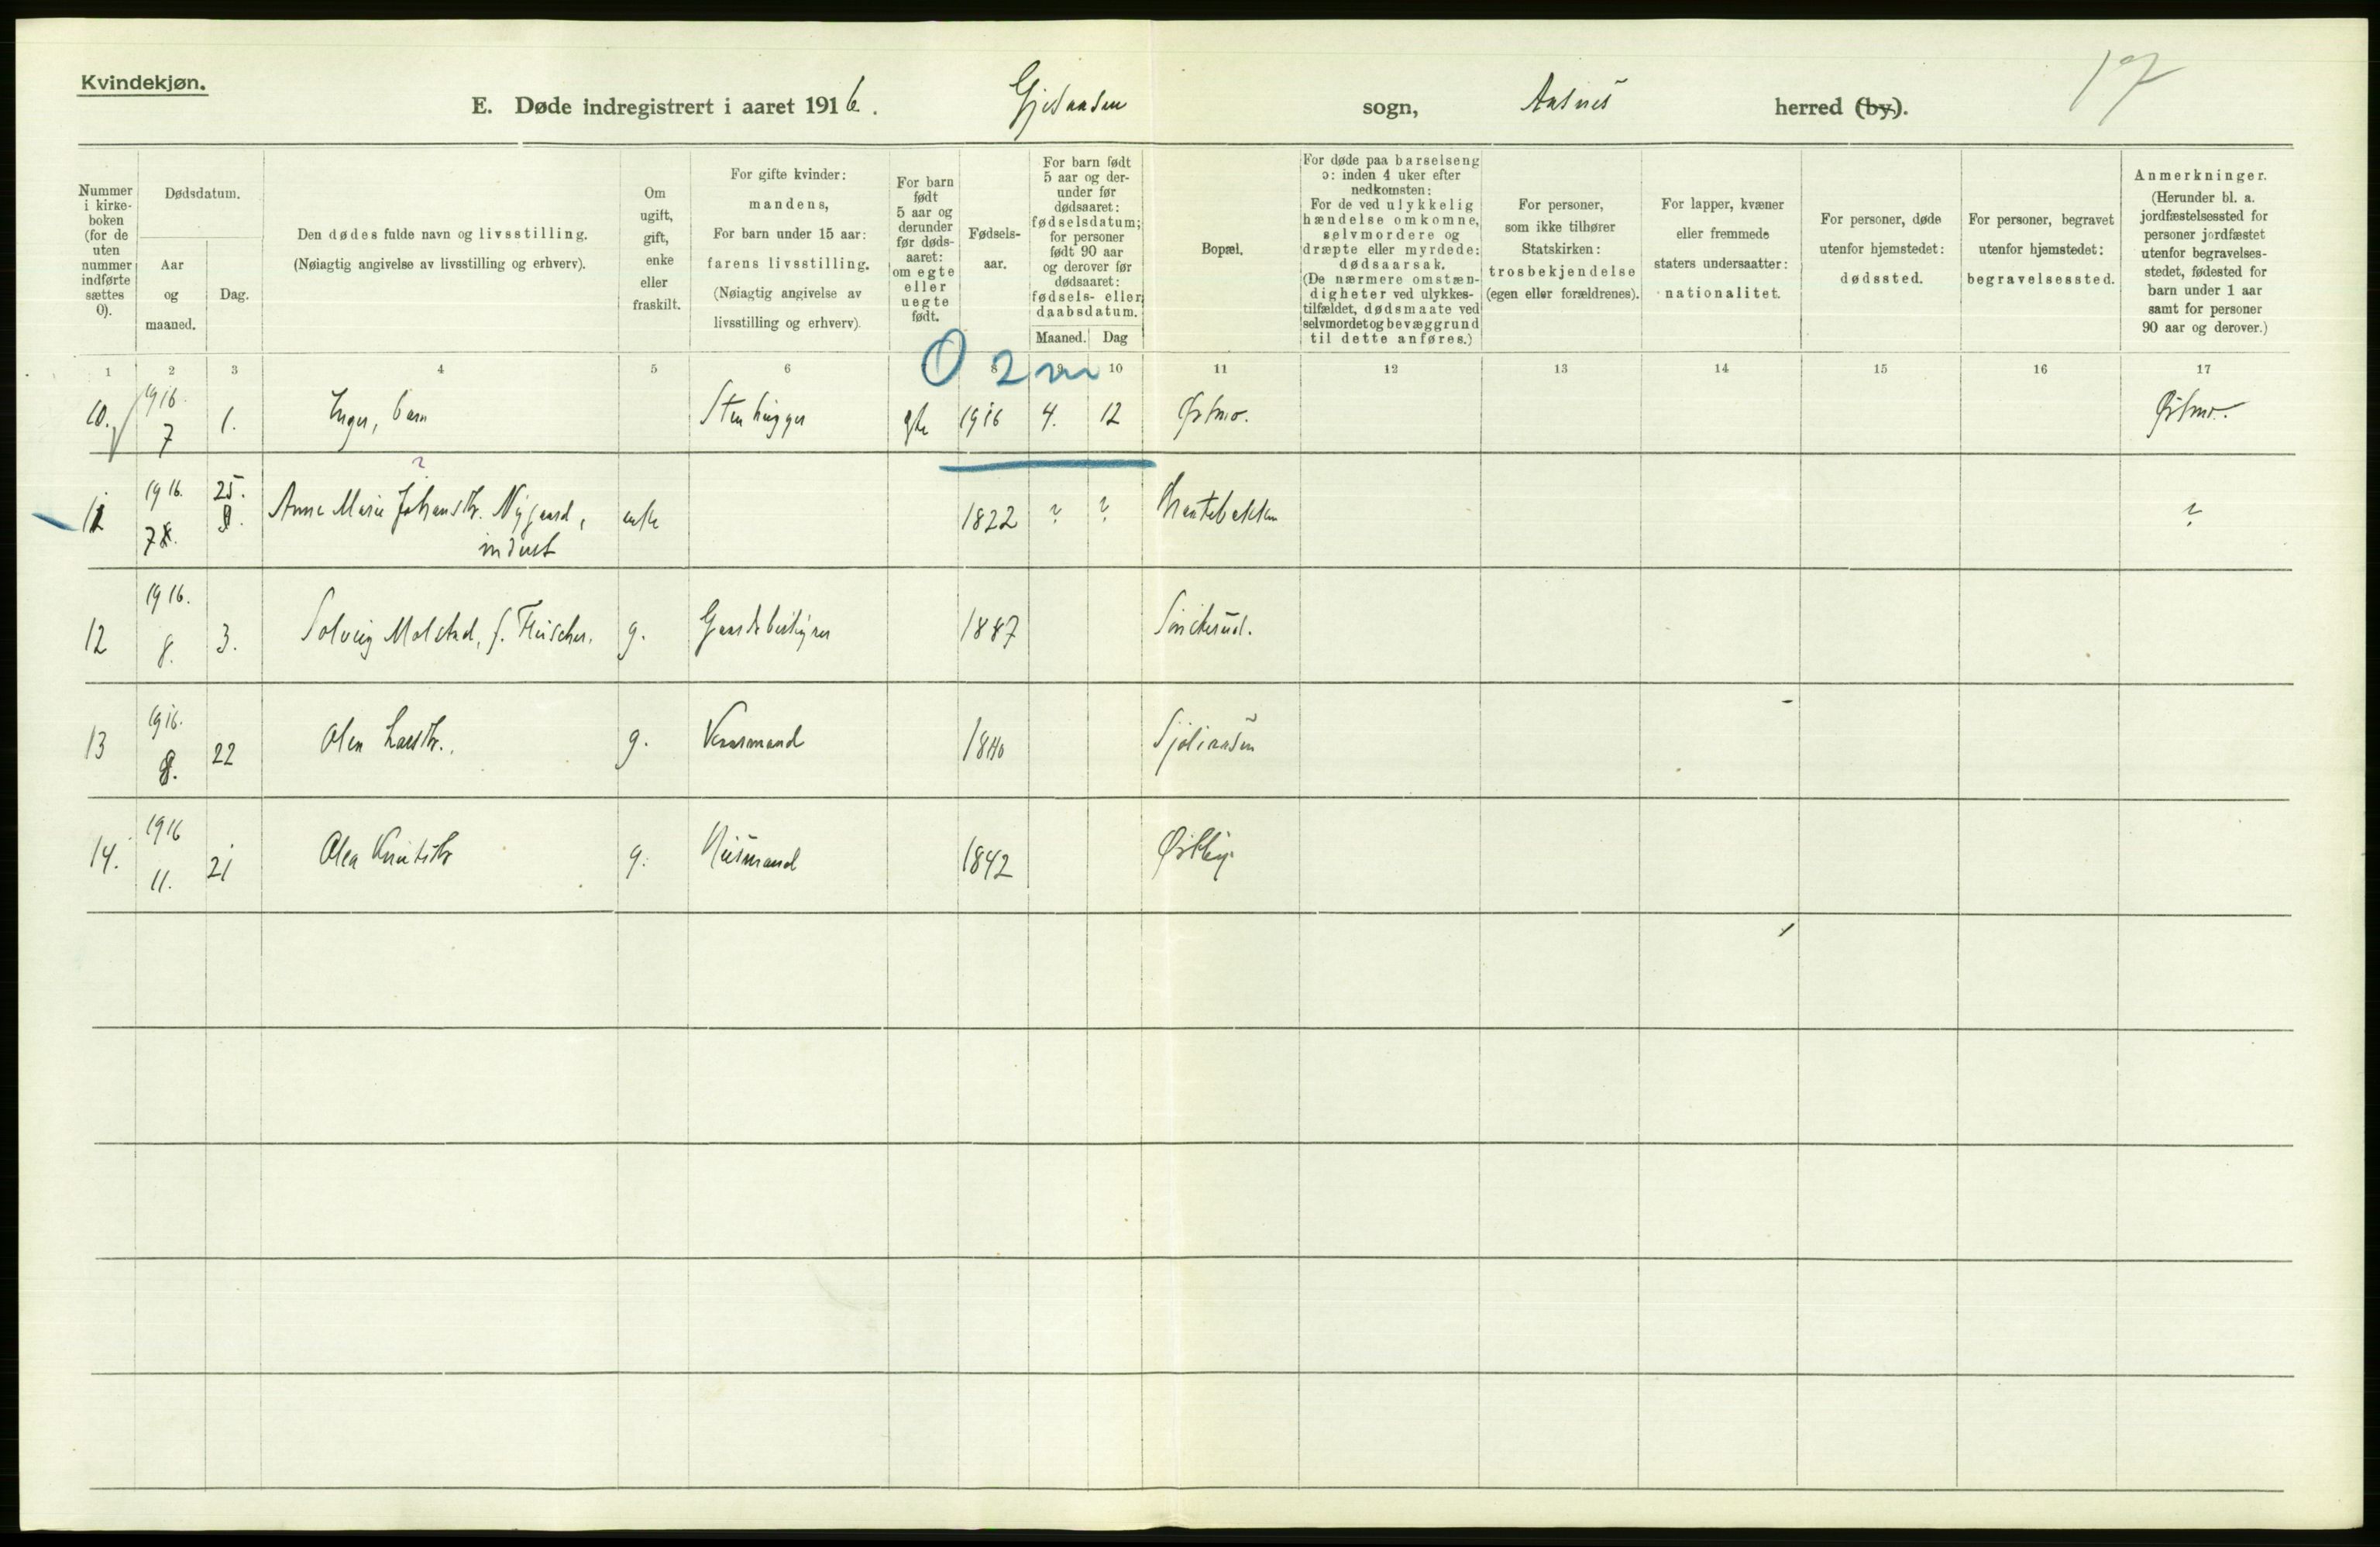 Kvindekjøn.
17
E. Døde indregistrert i aaret 1916. Gjesaasen sogn, Aasnes herred (by).
Nummer i kirke- boken (for de uten nummer indførte sættes 0).
Dødsdatum.
Aar og maaned.
Dag.
Den dødes fulde navn og livsstilling.
(Nøiagtig angivelse av livsstilling og erhverv).
Om ugift, gift, enke eller fraskilt.
For gifte kvinder:
mandens,
For barn under 15 aar:
farens livsstilling.
(Nøiagtig angivelse av
livsstilling og erhverv).
For barn født 5 aar og derunder før døds- aaret: om egte eller uegte født.
Fødsels- aar.
For barn født 5 aar og der- under før dødsaaret: fødselsdatum; for personer født 90 aar og derover før dødsaaret: fødsels- eller daabsdatum.
Maaned. Dag
Bopæl.
For døde paa barselseng ɔ: inden 4 uker efter nedkomsten: For de ved ulykkelig hændelse omkomne, selvmordere og dræpte eller myrdede: dødsaarsak. (De nærmere omstæn- digheter ved ulykkes- tilfældet, dødsmaate ved selvmordet og bevæggrund til dette anføres.)
For personer, som ikke tilhører Statskirken: trosbekjendelse (egen eller forældrenes).
For lapper, kvæner eller fremmede staters undersaatter: nationalitet.
For personer, døde utenfor hjemstedet: dødssted.
For personer, begravet utenfor hjemstedet: begravelsessted.
Anmerkninger. (Herunder bl. a. jordfæstelsessted for personer jordfæstet utenfor begravelses- stedet, fødested for barn under 1 aar samt for personer 90 aar og derover.)
1 2 3 4 5 6 8 9 10 11 12 13 14 15 16 17
0 2 m
10. 1916. 7 1. Inger, barn Stenhugger egte 1916 4. 12 Østmo. Østmo.
?
11 1916. 7 25. Anne Marie Johansdtr. Nygaard, enke 1822 ? ? ?
indert
12 1916. 8. 3. Solveig Molstad, f. Fleischer. g. Gaardsbestyrer 1887
13 1916. 8. 22 Olea Larsdtr. g. 1840 Sjøliaasen
14. 1916 11. 21 Olea Knutsdtr g. Husmand 1842 Østby